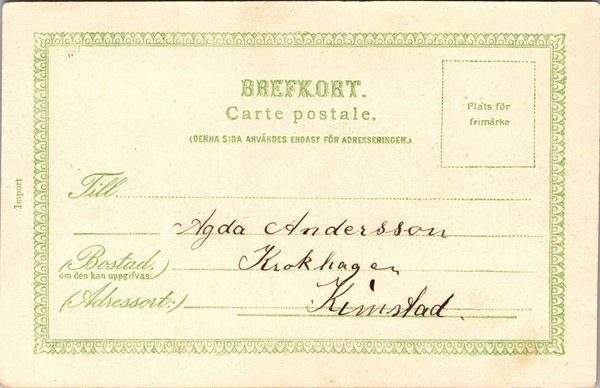 BREFKORT.
Carte postale.
(DENNA SIDA ANVÄNDES ENDAST FÖR ADRESSERINGEN.)
Plats för
frimärke
Import
Till
Agda Andersson
(Bostad,
Krokhagen
om den kan uppgifvas)
(Adressort:)
Kimstad.